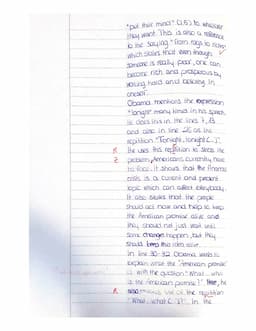 "put their mind" (l.5) to whatever
they want. This is also a reference
to the saying "from rags to riches"
which states that even though
someone is really poor, one can
become rich and prosperous by
working hard and believing in
oneself.
Obama mentions the expression
"longer" many times in his speech.
He does this in the lines
and also in line 26 as the
repitition "Tonight, tonight (...)".
R He uses this repitition to stress the
Z problem Americans currently have
to face. It shows that the financial
crisis is a current and present
topic which can affect everybody.
It also shows that the people
should act now and help to keep
the American promise alive and
they should not just wait until
some change happen, but they
should keep this idea alive.
In line 30-32 Obama wants to
explain what the "American promise"
is with the question "What ... who
is the American promise?". Here, he
R also makes use of the repitition
"What... what (...)". In the